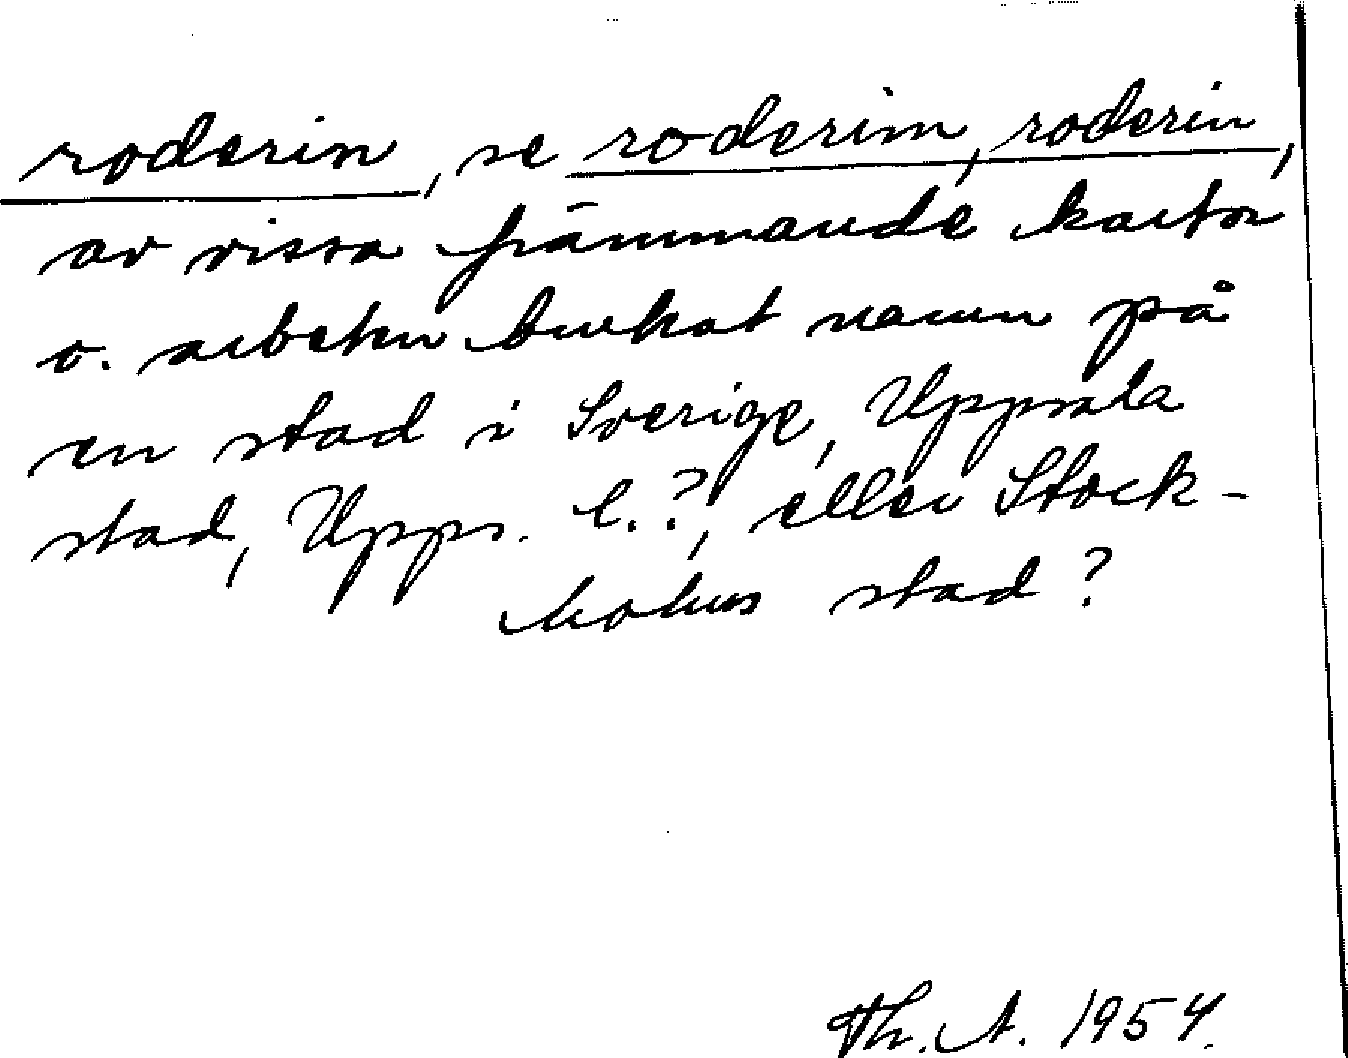 roderin, se roderim, roderin,
av vissa främmande kartor
o. arbeten brukat namn på
en stad i Sverige, Uppsala
stad, Upps. l.?, eller Stock-
holms stad?
Th. A. 1954.